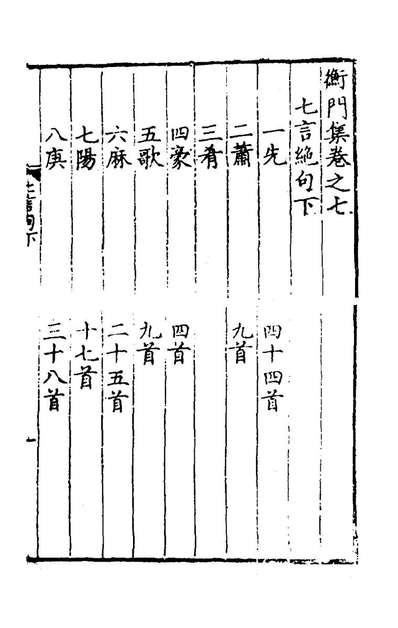 衡門集卷之七
七言絶句下
一先 四十四首
二蕭 九首
三肴
四豪 四首
五歌 九首
六麻 二十五首
七陽 十七首
八庚 三十八首
七言句下
一